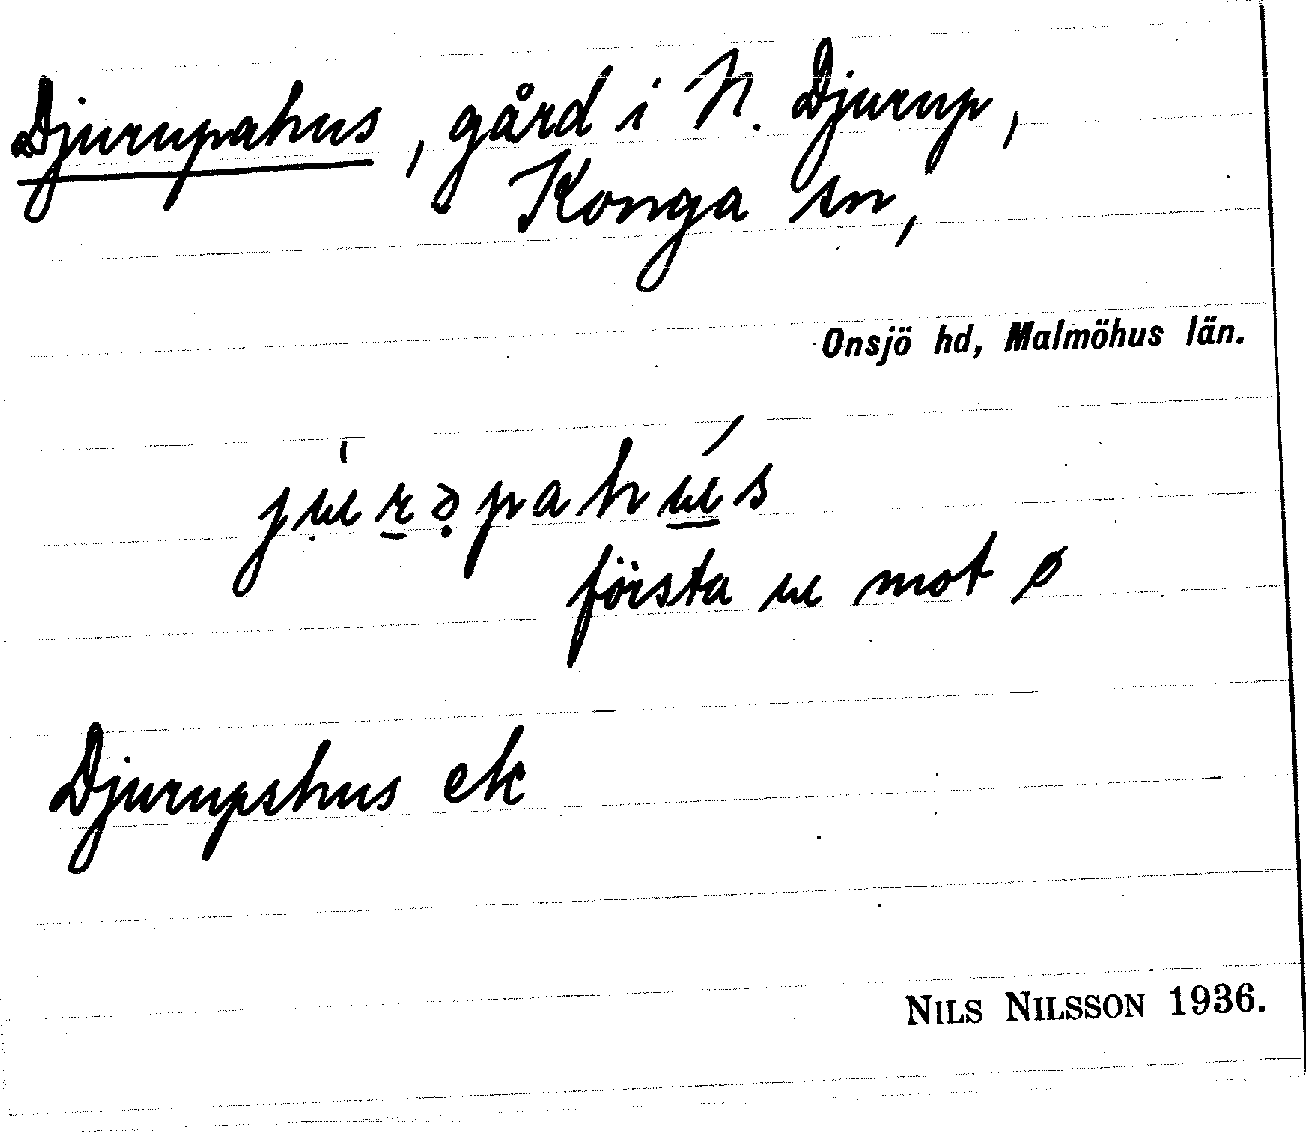 Djurupahus, gård i N. Djurup,
Konga sn,
Onsjö hd, Malmöhus län.
jurəpahús
första u mot ø
Djurupshus ek
NILS NILSSON 1936.